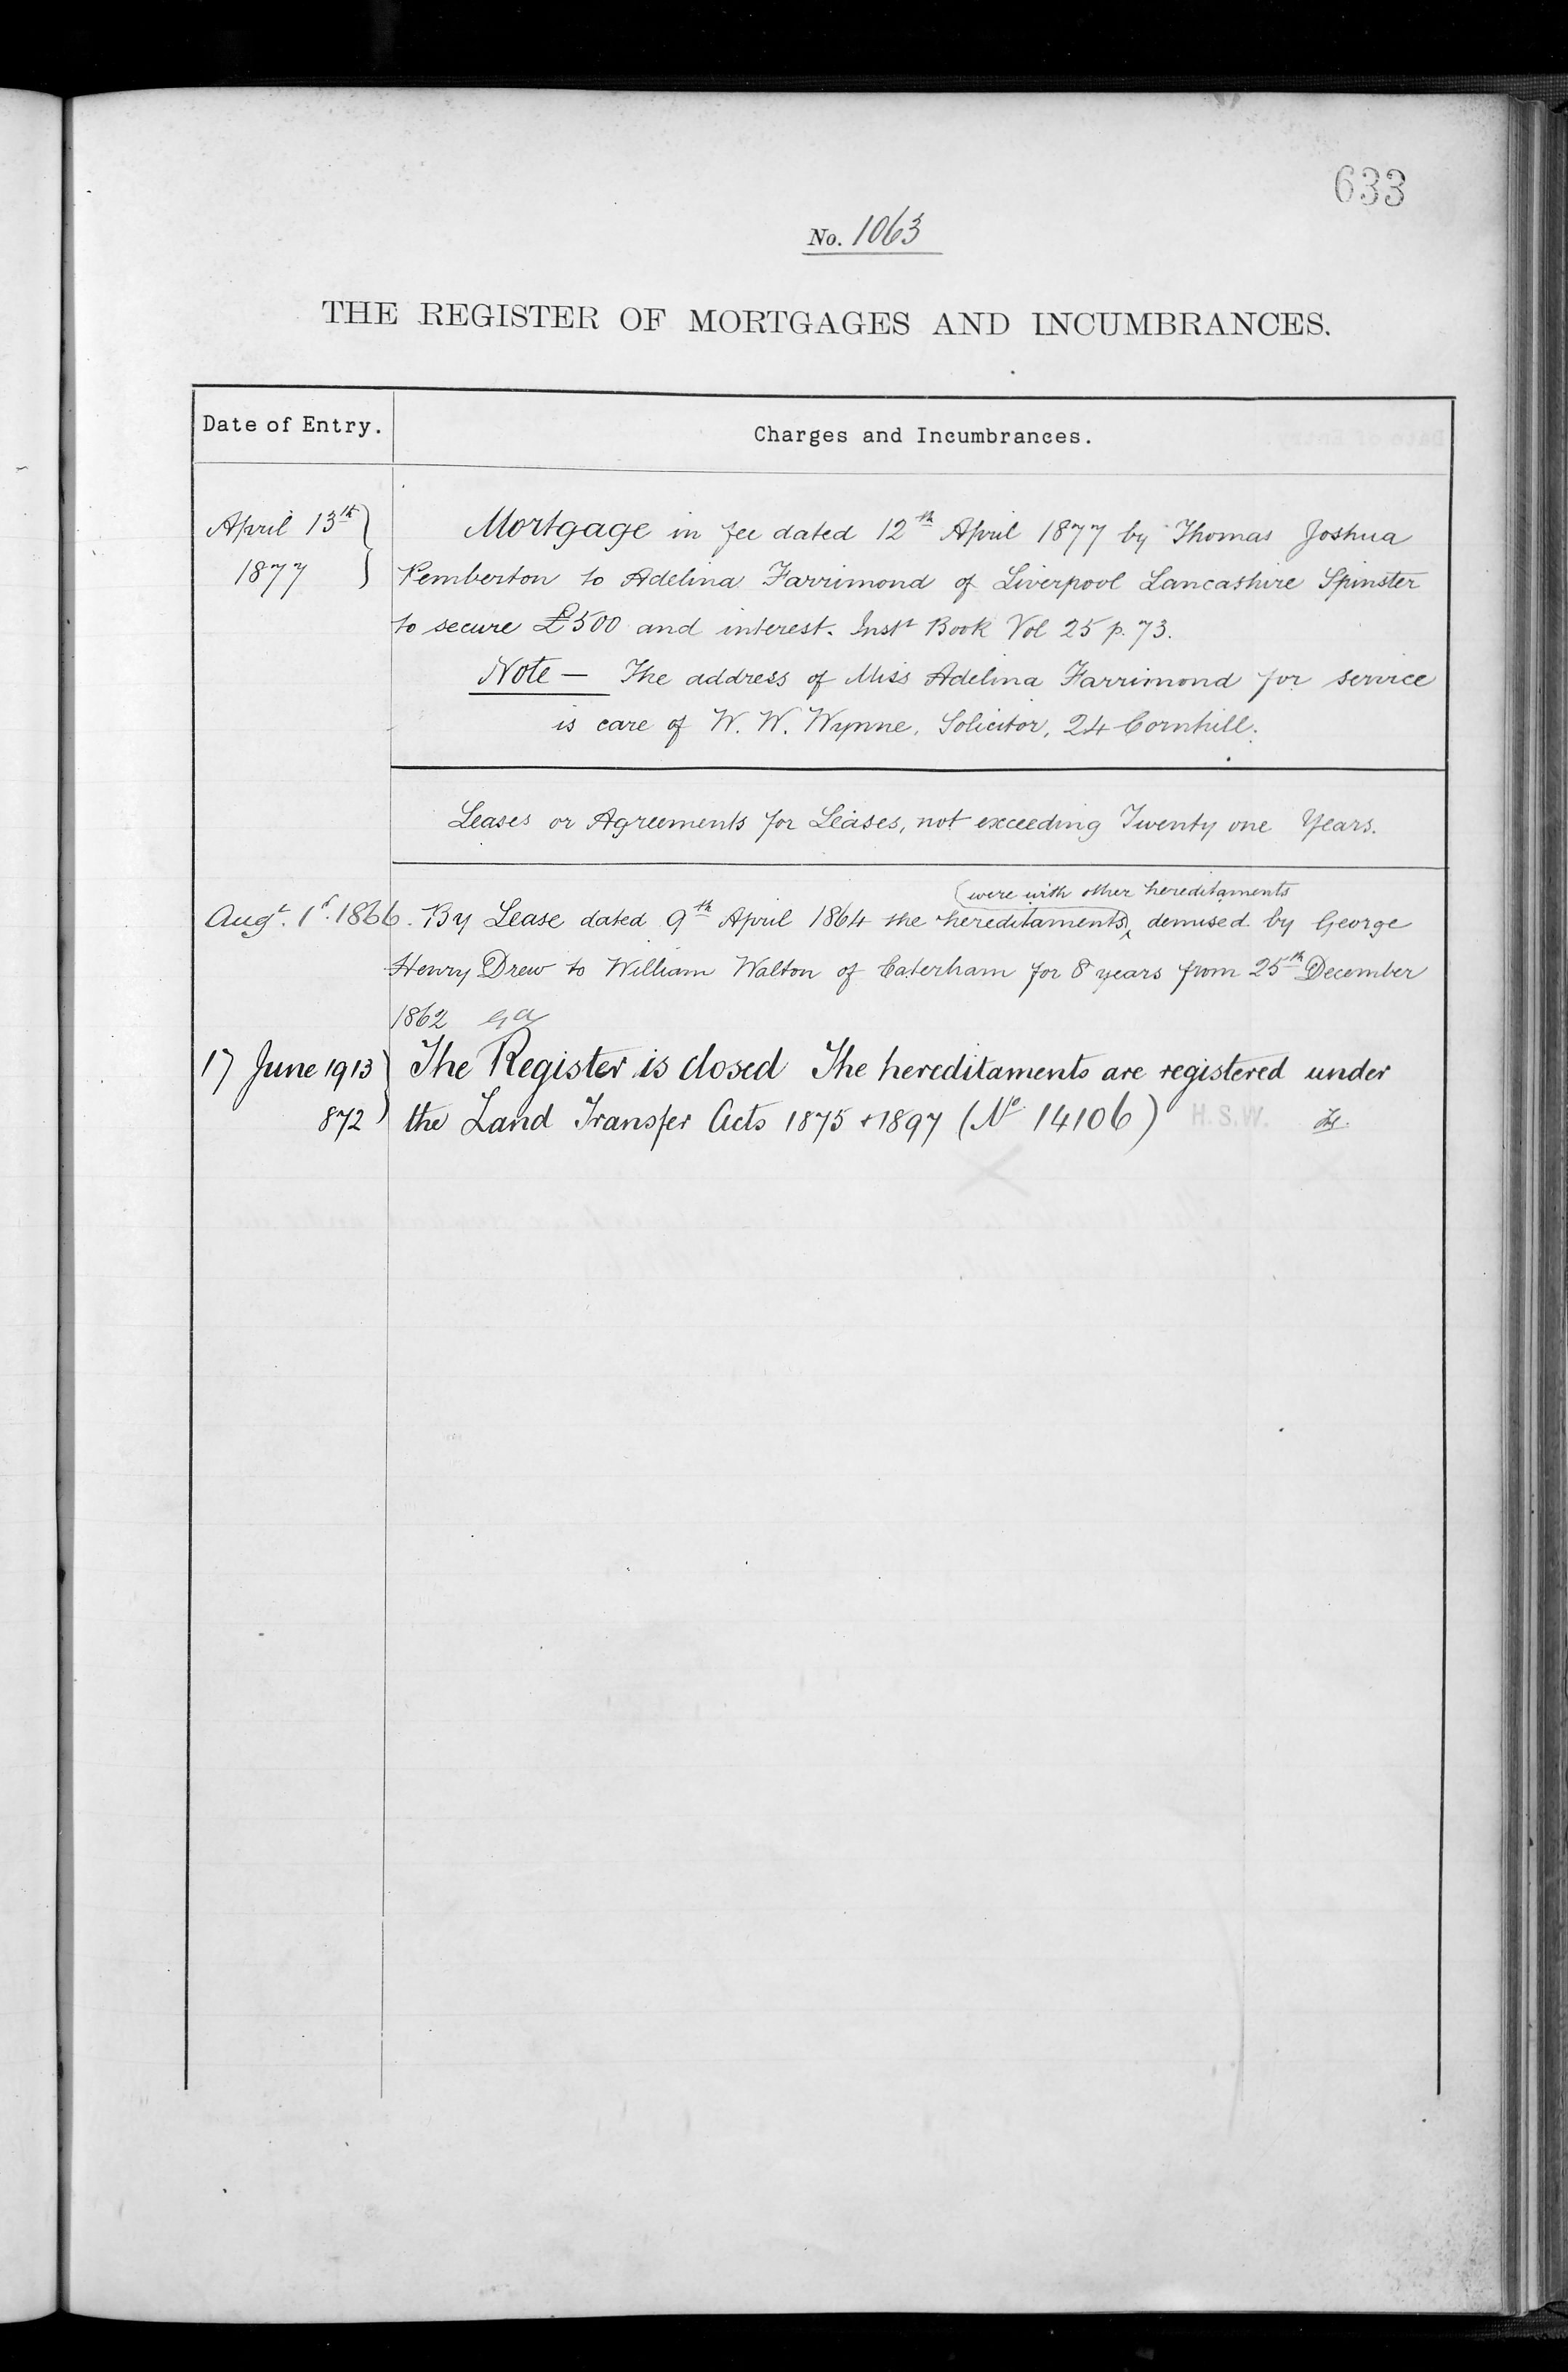 633
No. 1063
THE REGISTER OF MORTGAGES AND INCUMBRANCES.
Date of Entry. Charges and Incumbrances.
April 13th Mortgage in fee dated 12th April 1877 by Thomas Joshua
1877 Pemberton to Adelina Farrimond of Liverpool Lancashire Spinster
to secure £500 and interest. Inst Book Vol 25 p. 73.
Note — The address of Miss Adelina Farrimond for service
is care of W. W. Wynne, Solicitor, 24 Cornhill.
Leases or Agreements for Leases, not exceeding Twenty one Years.
(were with other hereditaments
Augt. 1st. 1866. By Lease dated 9th April 1864 the hereditaments demised by George
Henry Drew to William Walton of Caterham for 8 years from 25th December
1862
17 June 1913 The Register is closed The hereditaments are registered under
872 the Land Transfer Acts 1875 + 1897 (No 14106) H.S.W.